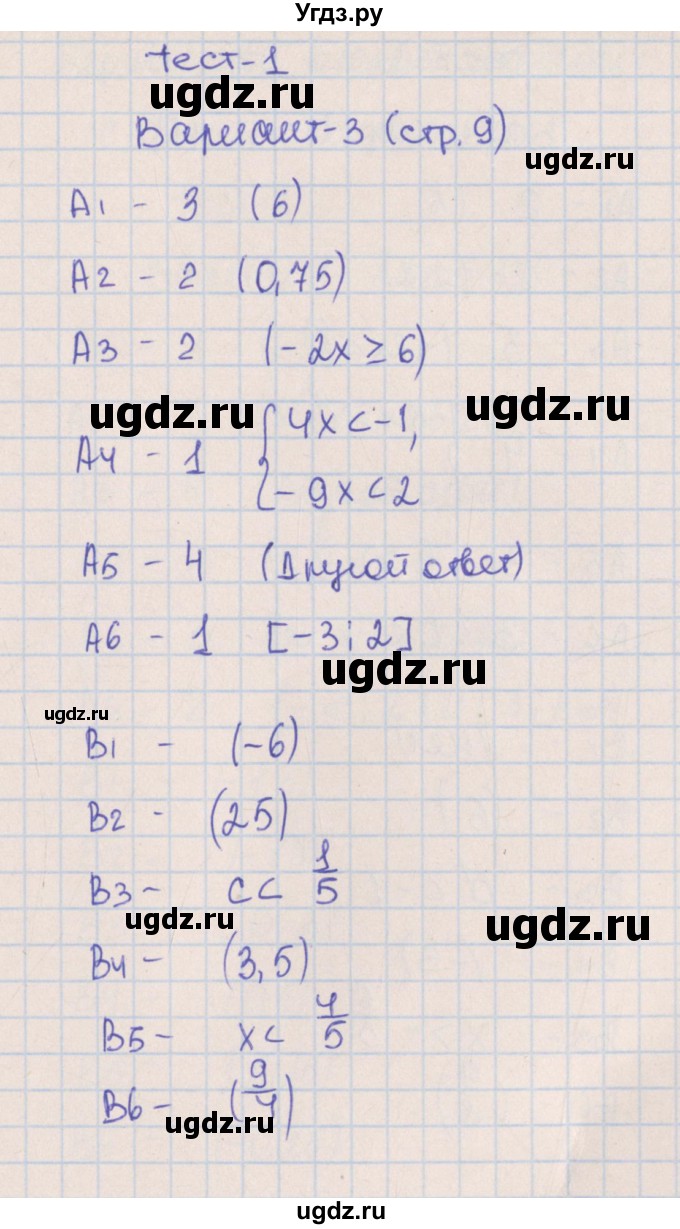 Угдз.ру
Тест-1
ugdz.ru
Вариант-3 (стр. 9)
ugdz.ru
А1 - 3 (6)
А2 - 2 (0,75)
А3 - 2 (-2x ≥ 6)
ugdz.ru
ugdz.ru
А4 - 1 { 4x < -1,
-9x < 2
А5 - 4 (Другой ответ)
А6 - 1 [-3; 2]
ugdz.ru
ugdz.ru
В1 - (-6)
В2 - (25)
В3 - c < 1/5
ugdz.ru
ugdz.ru
В4 - (3,5)
В5 - x < 4/5
В6 - (9/4)
ugdz.ru
ugdz.ru